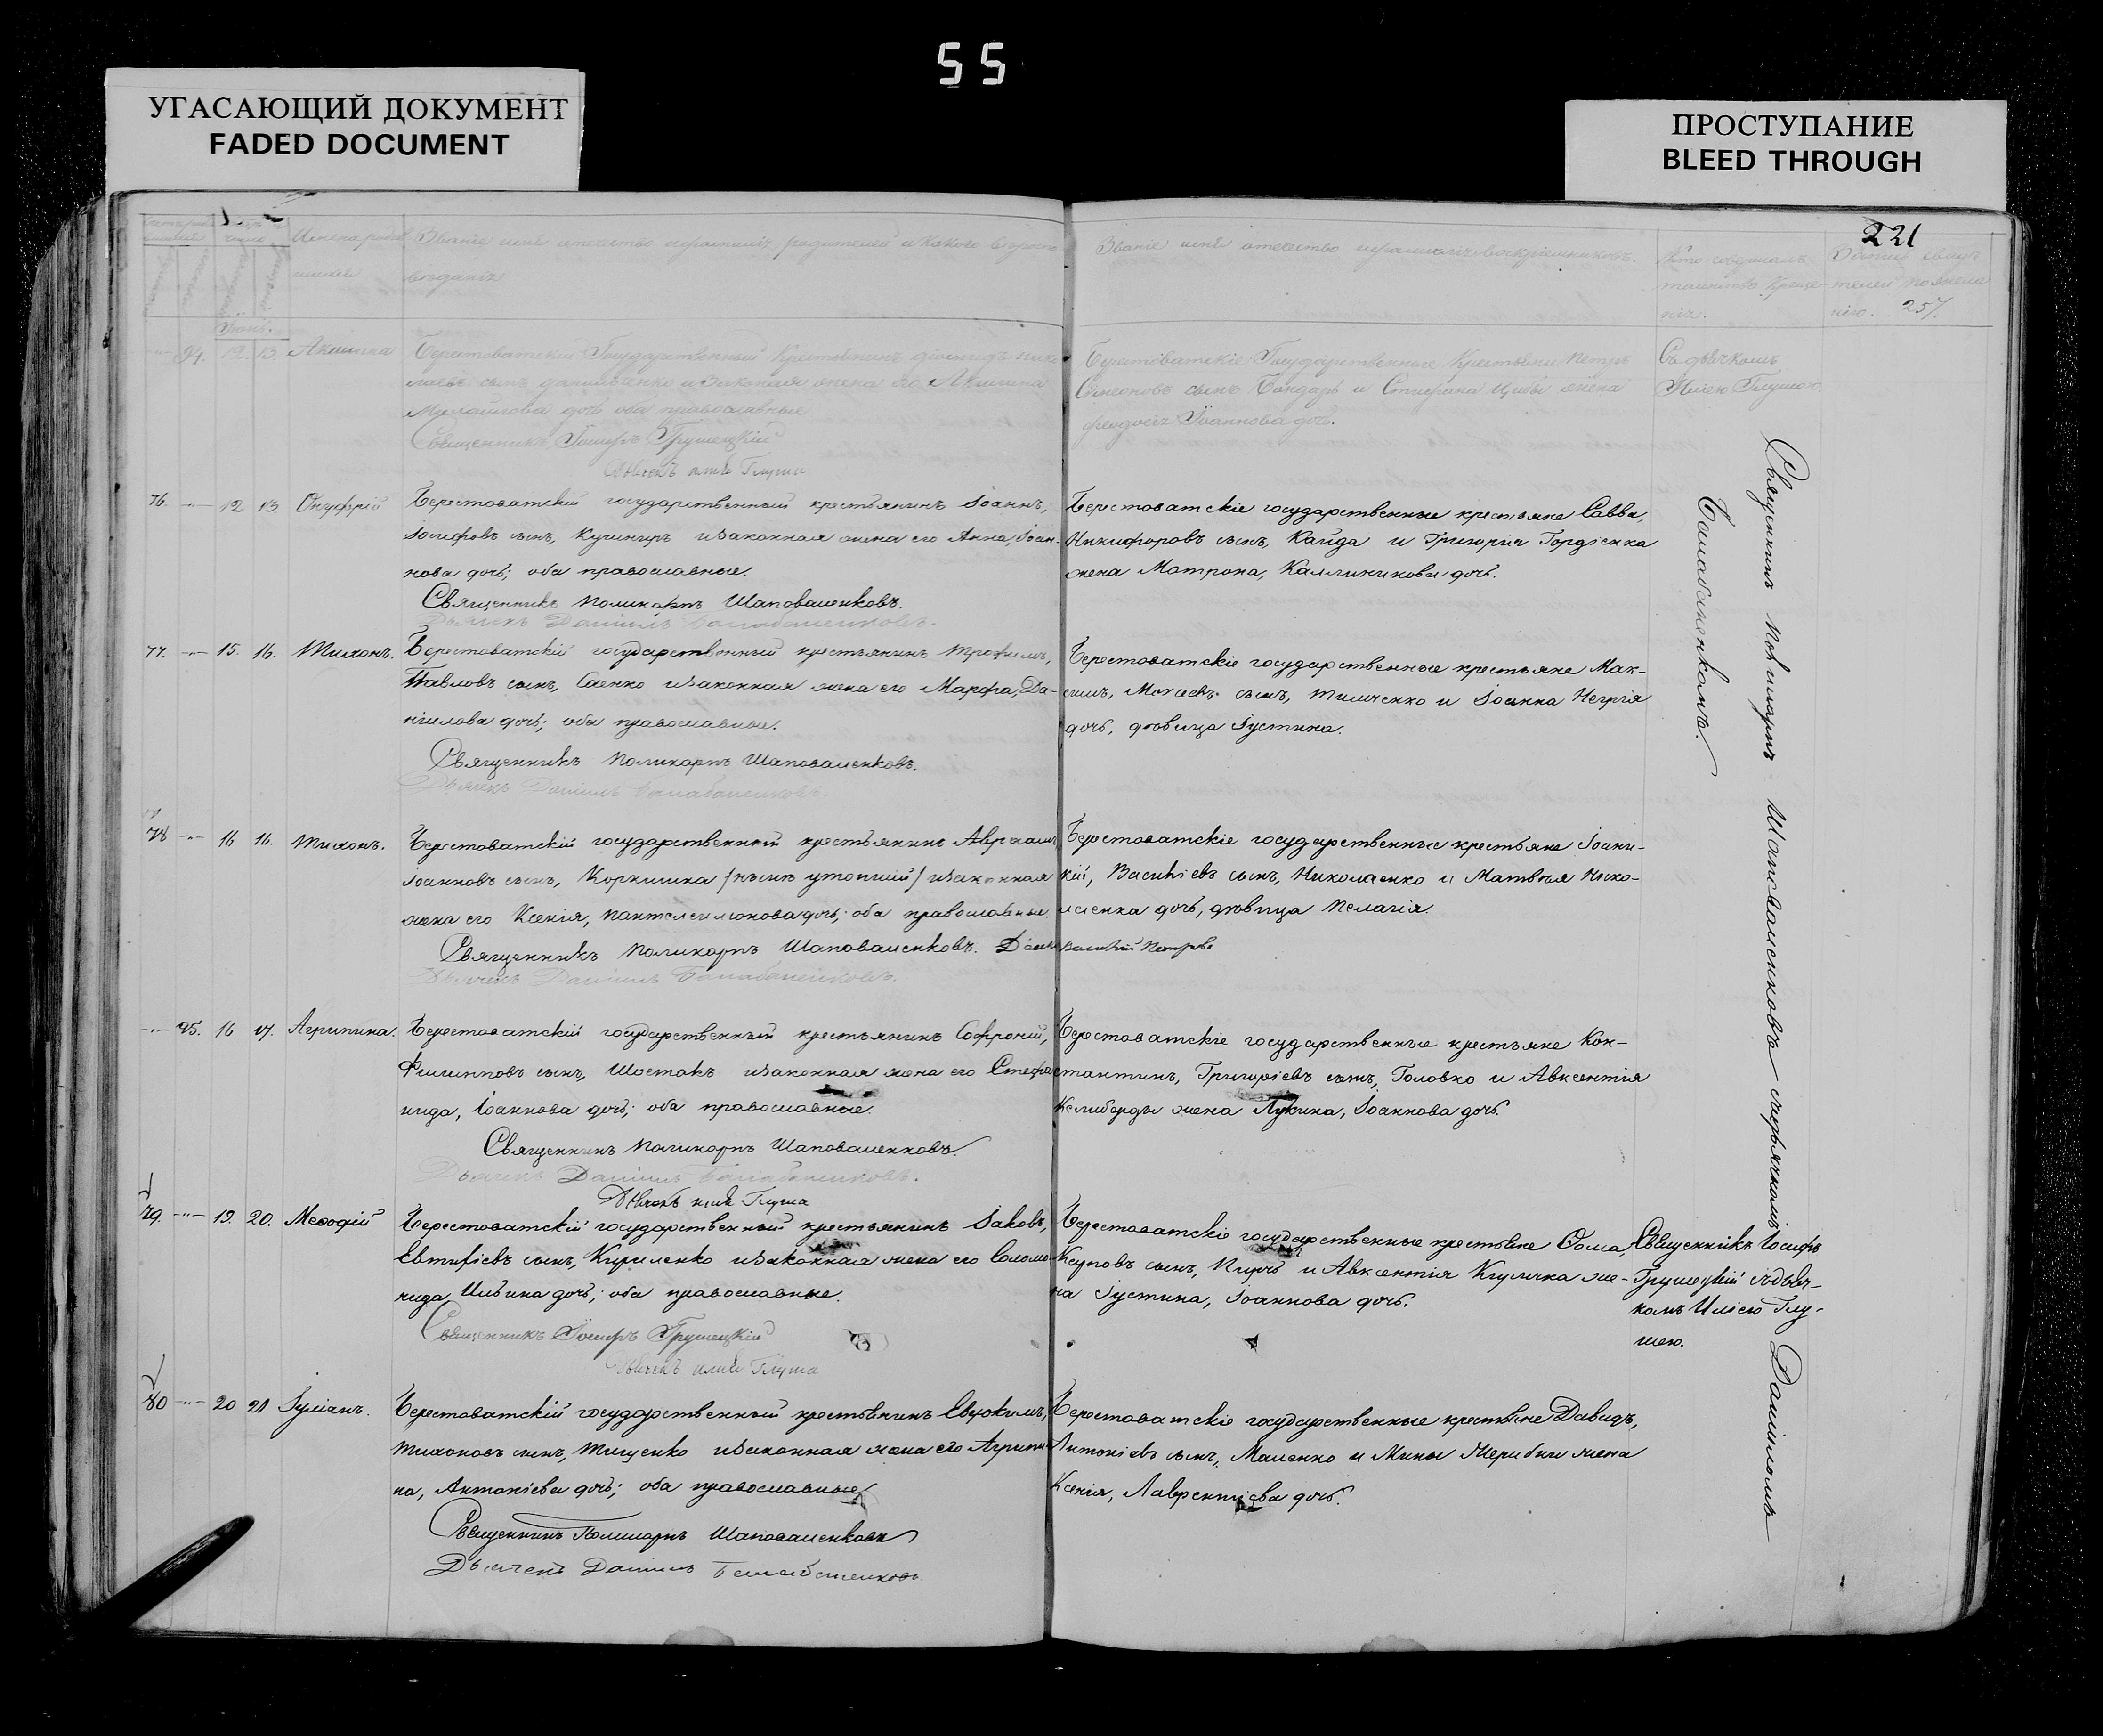 55
УГАСАЮЩИЙ ДОКУМЕНТ
FADED DOCUMENT
ПРОСТУПАНИЕ
BLEED THROUGH
221
257.
Имена родив
шихся
Званіе имя отечество и фамилія родителей и какого вероиспо
веданія
Званіе имя отечество и фамилія воспріемниковъ.
Кто совершалъ
таинство креще-
нія.
Іюнь.
94. 12. 13. Акилина
Берестоватскій Государственный Крестьянинъ Нико
лаевъ сынъ Данильченко и законная жена его Акилина
дочь оба православные
Священникъ Іосифъ Грушецкій
Дьячекъ Илія Глуша
Берестоватскіе Государственные Крестьяне Петръ
Симеоновъ сынъ Бондарь и Стефана Цыбы жена
Феодосія Іоаннова дочь.
Съ дьячкомъ
Иліею Глушею.
76. 12 13 Онуфрій
Берестоватскій государственный крестьянинъ Іоаннъ,
Іосифовъ сынъ, Кушниръ и законная жена его Анна, Іоан-
нова дочь; оба православные.
Священникъ Поликарпъ Шаповаленковъ.
Дьячекъ Даніилъ Балабаненковъ.
Берестоватскіе государственные крестьяне Савва,
Никифоровъ сынъ, Кайда и Григорія Гордіенка
жена Матрона, Каллиникова дочь.
77. 15. 16. Тихонъ.
Берестоватскій государственный крестьянинъ Трофимъ,
Павловъ сынъ, Саенко и законная жена его Марфа, Да-
ніилова дочь; оба православные.
Священникъ Поликарпъ Шаповаленковъ.
Дьячекъ Даніилъ Балабаненковъ.
Берестоватскіе государственные крестьяне Мак-
симъ, Моисеевъ сынъ, Тимченко и Іоанна
дочь, девица Іустина.
78 16 16. Тихонъ.
Берестоватскій государственный крестьянинъ Авраамъ,
Іоанновъ сынъ, Коркишка /ныне утопшій/ и законная
жена его Ксенія, Пантелеимонова дочь; оба православные.
Священникъ Поликарпъ Шаповаленковъ.
Дьячекъ Даніилъ Балабаненковъ.
Берестоватскіе государственные крестьяне Іоанни-
кій, Василіевъ сынъ, Николаенко и Матвея Нико-
лаенка дочь, девица Пелагія.
Василій Петровъ
95. 16 17. Агрипина.
Берестоватскій государственный крестьянинъ Софроній,
Филипповъ сынъ, Шостакъ и законная жена его Стефа
нида, Іоаннова дочь; оба православные.
Священникъ Поликарпъ Шаповаленковъ.
Дьячекъ Даніилъ Балабаненковъ.
Берестоватскіе государственные крестьяне Кон-
стантинъ, Григоріевъ сынъ, Головко и Авксентія
Келиберды жена Лукина, Іоаннова дочь.
Дьячекъ Илія Глуша
79. 19. 20. Меѳодій
Берестоватскій государственный крестьянинъ Іаковъ,
Евтихіевъ сынъ, Кириленко и законная жена его Соломо
нида, Ильина дочь; оба православные.
Священникъ Іосифъ Грушецкій
Дьячекъ Илія Глуша
Берестоватскіе государственные крестьяне Ѳома,
Карповъ сынъ, и Авксентія Киричка же-
на Іустина, Іоаннова дочь.
Священникъ Іосифъ
Грушецкій съ дьяч-
комъ Иліею Глу-
шею.
80 20 21 Іуліанъ.
Берестоватскій государственный крестьянинъ Евдокимъ,
Тихоновъ сынъ, Тищенко и законная жена его Агрипи
на, Антоніева дочь; оба православные
Священникъ Поликарпъ Шаповаленковъ
Дьячекъ Даніилъ Балабаненковъ
Берестоватскіе государственные крестьяне Давидъ,
Антоніевъ сынъ, Маленко и Мины жена
Ксенія, Лаврентіева дочь.
Священникъ Поликарпъ Шаповаленковъ съ дьячкомъ Даніиломъ
Балабаненкомъ.